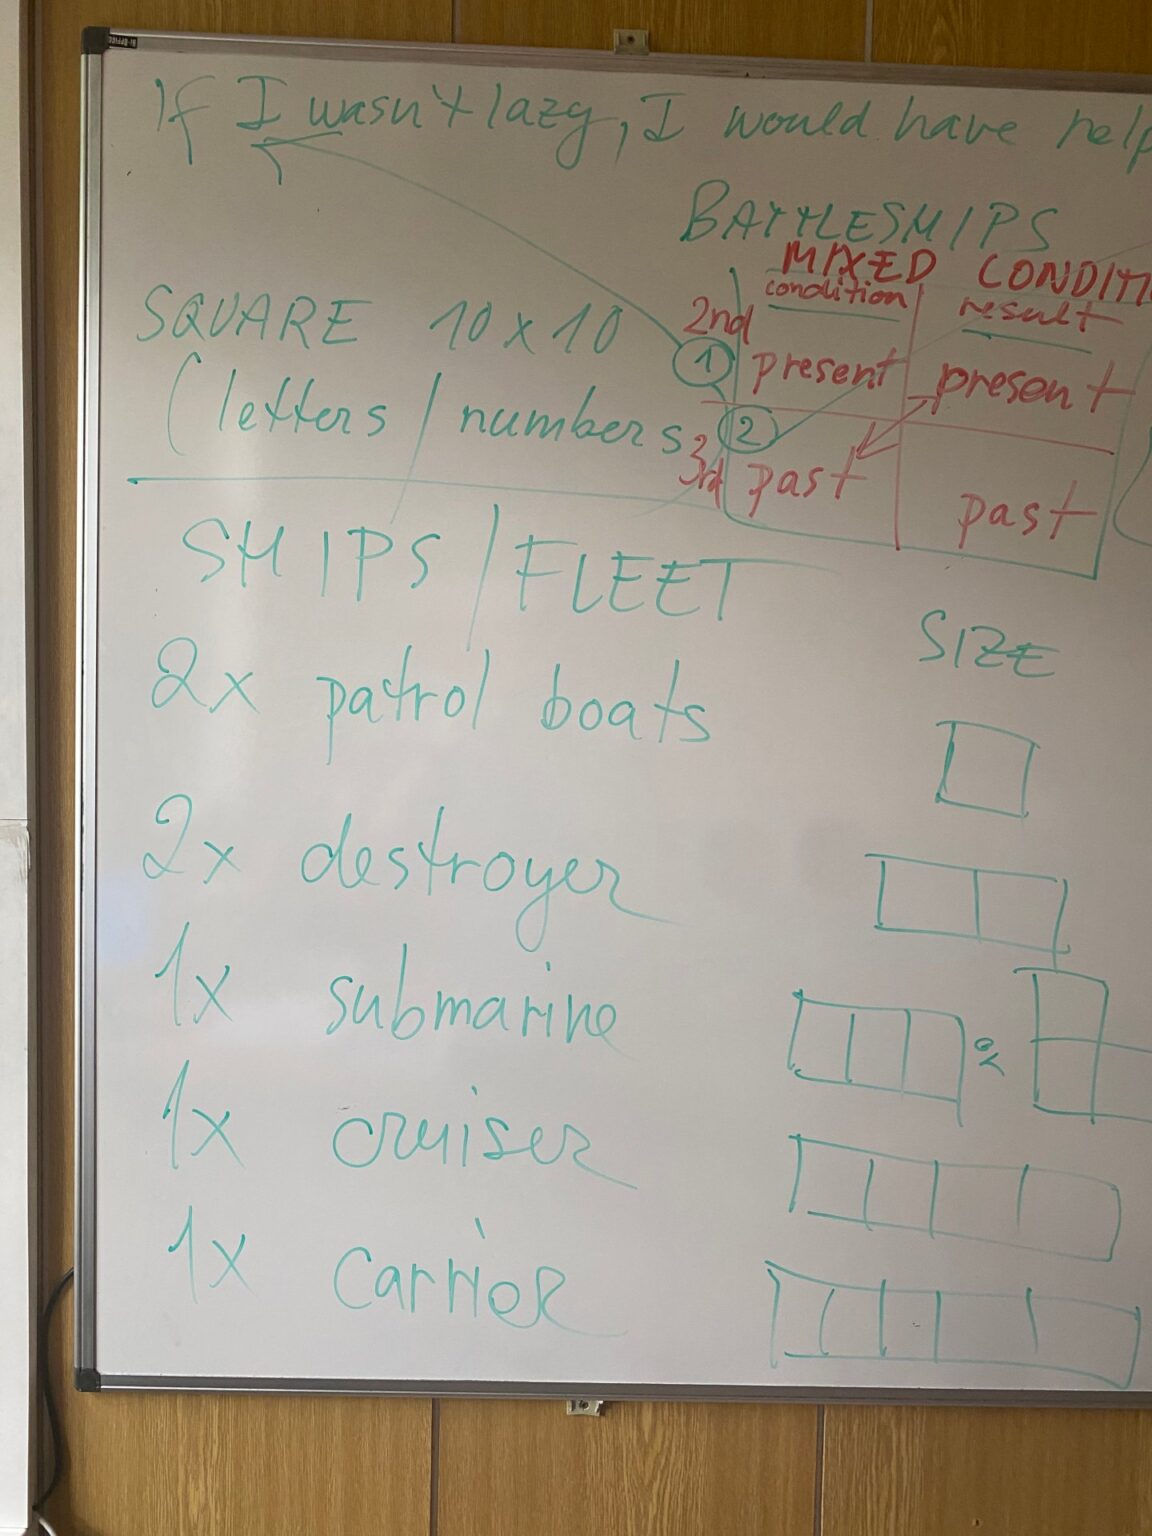 If I wasn't lazy, I would have help
BATTLESHIPS
MIXED CONDITI
condition result
SQUARE 10 x 10
2nd
1 present present
(letters / numbers
2
3rd past past
SHIPS / FLEET
SIZE
2x patrol boats
2x destroyer
1x submarine
or
1x cruiser
1x carrier